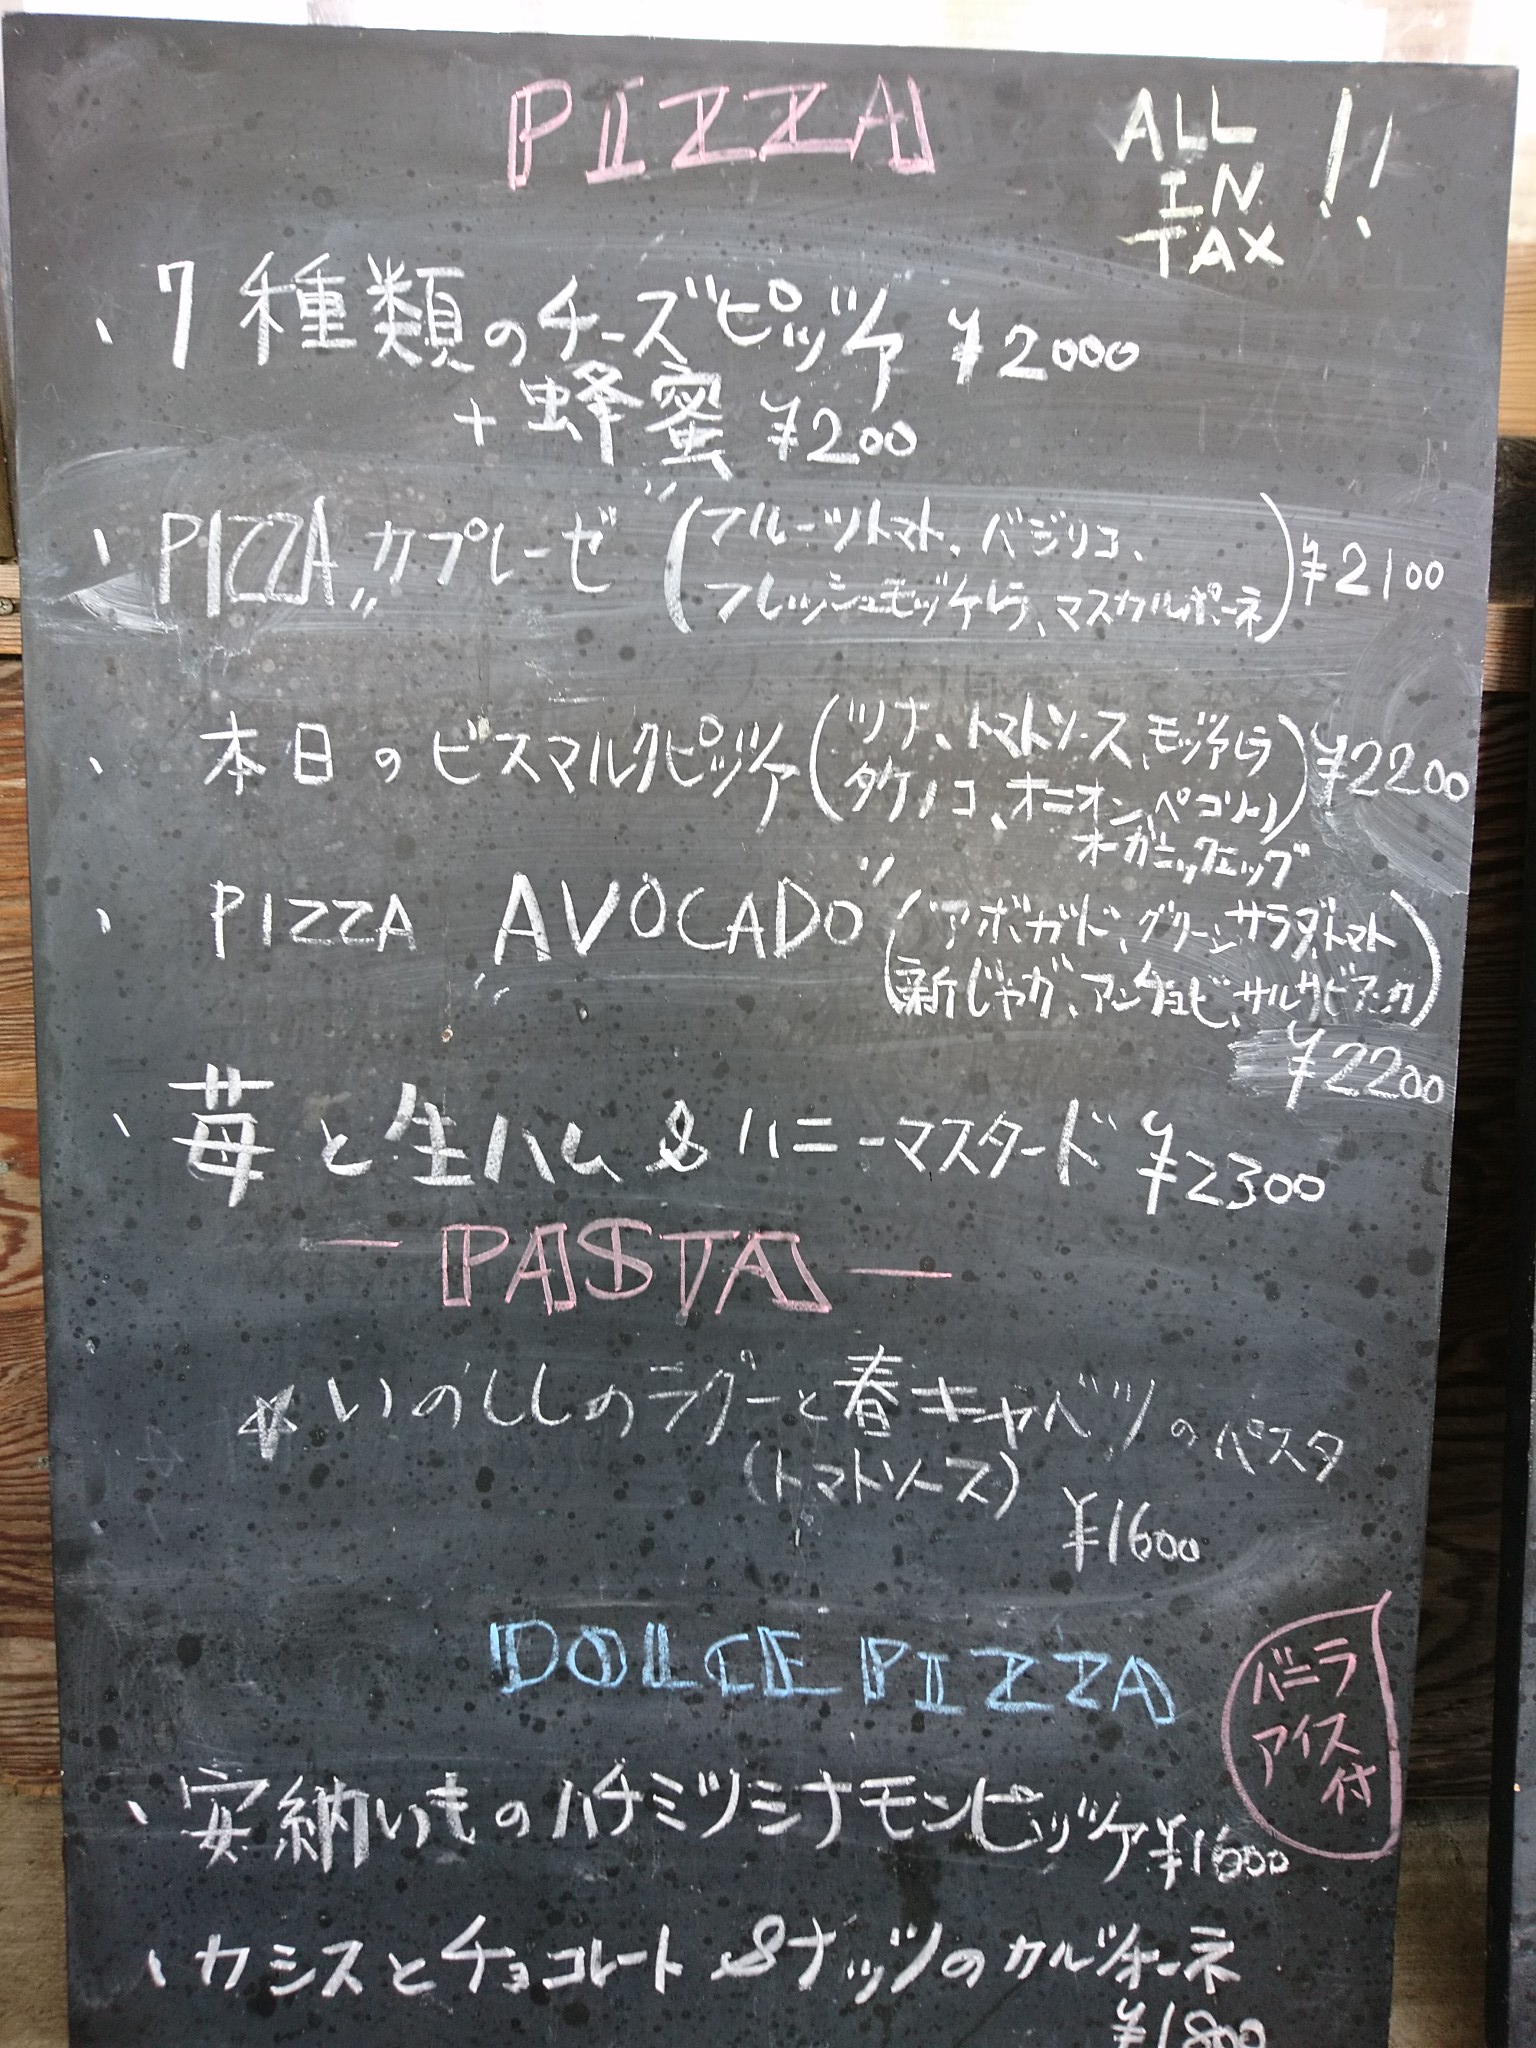 PIZZA
ALL
IN
TAX !!
、7種類のチーズピッツァ ¥2000
+蜂蜜 ¥200
、PIZZA "カプレーゼ" (フルーツトマト、バジリコ、
フレッシュモッツァレラ、マスカルポーネ) ¥2100
、本日のビスマルクピッツァ (ツナ、トマトソース、モッツァレラ
タケノコ、オニオン、ペコリーノ
オーガニックエッグ) ¥2200
、PIZZA "AVOCADO" (アボガド、グリーンサラダ、トマト
新じゃが、アンチョビ、サルサビアンカ)
¥2200
、苺と生ハム & ハニーマスタード ¥2300
— PASTA —
☆いのししのラグーと春キャベツのペスタ
(トマトソース)
¥1600
DOLCE PIZZA
バニラ
アイス
付
、安納いものハチミツシナモンピッツァ ¥1600
、カシスとチョコレート&ナッツのカルツォーネ
¥1800